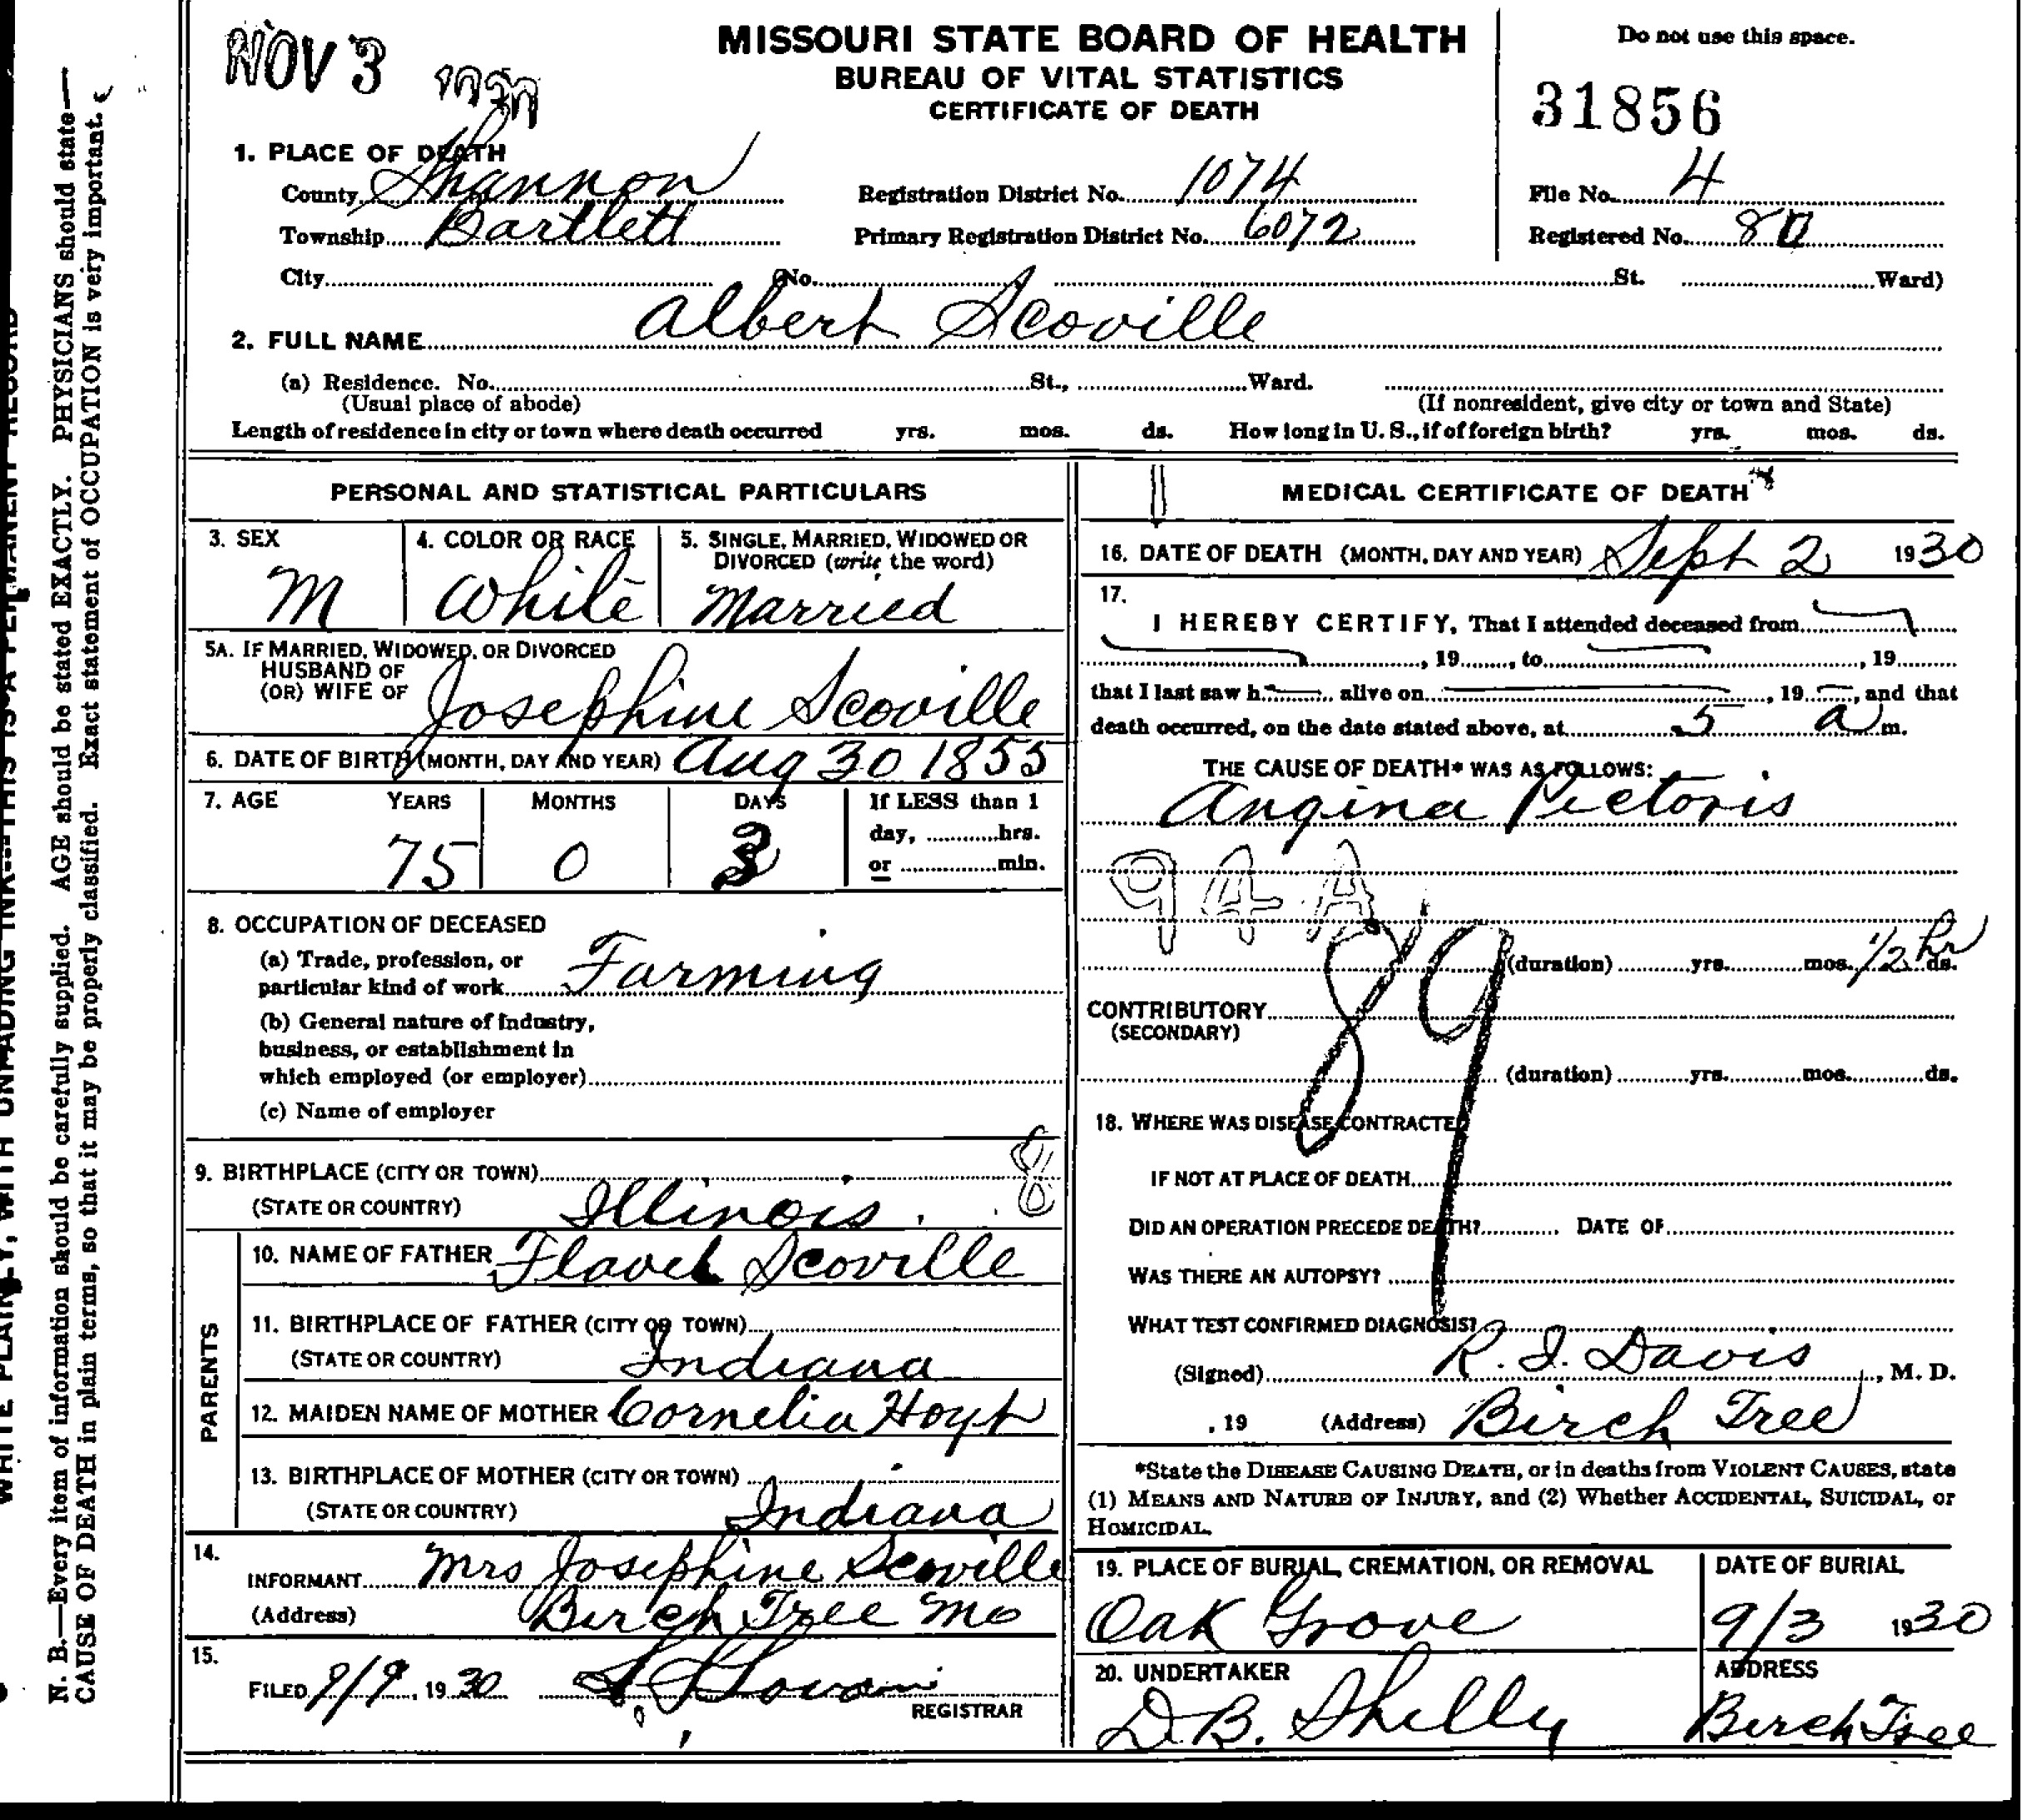 NOV 3 1930
MISSOURI STATE BOARD OF HEALTH
BUREAU OF VITAL STATISTICS
CERTIFICATE OF DEATH
Do not use this space.
31856
1. PLACE OF DEATH
County Shannon Registration District No. 1074 File No. 4
Township Bartlett Primary Registration District No. 6072 Registered No. 80
City (No. St. Ward)
2. FULL NAME Albert Scoville
(a) Residence. No. St., Ward.
(Usual place of abode) (If nonresident, give city or town and State)
Length of residence in city or town where death occurred yrs. mos. ds. How long in U. S., if of foreign birth? yrs. mos. ds.
PERSONAL AND STATISTICAL PARTICULARS
3. SEX 4. COLOR OR RACE 5. SINGLE, MARRIED, WIDOWED OR
DIVORCED (write the word)
M White Married
5A. IF MARRIED, WIDOWED, OR DIVORCED
HUSBAND OF
(OR) WIFE OF Josephine Scoville
6. DATE OF BIRTH (MONTH, DAY AND YEAR) Aug 30 1855
7. AGE YEARS MONTHS DAYS If LESS than 1
day, hrs.
or min.
75 0 3
8. OCCUPATION OF DECEASED
(a) Trade, profession, or
particular kind of work Farming
(b) General nature of industry,
business, or establishment in
which employed (or employer)
(c) Name of employer
9. BIRTHPLACE (CITY OR TOWN) 8
(STATE OR COUNTRY) Illinois
PARENTS
10. NAME OF FATHER Flavel Scoville
11. BIRTHPLACE OF FATHER (CITY OR TOWN)
(STATE OR COUNTRY) Indiana
12. MAIDEN NAME OF MOTHER Cornelia Hoyt
13. BIRTHPLACE OF MOTHER (CITY OR TOWN)
(STATE OR COUNTRY) Indiana
14.
INFORMANT Mrs Josephine Scoville
(Address) Birch Tree Mo
15.
FILED 9/9, 1930
REGISTRAR
11 MEDICAL CERTIFICATE OF DEATH
16. DATE OF DEATH (MONTH, DAY AND YEAR) Sept 2 1930
17.
I HEREBY CERTIFY, That I attended deceased from
, 19 , to , 19
that I last saw h alive on , 19 , and that
death occurred, on the date stated above, at 5 a m.
THE CAUSE OF DEATH* WAS AS FOLLOWS:
Angina Pectoris
94A
89
(duration) yrs. mos. 1/2 hr ds.
CONTRIBUTORY
(SECONDARY)
(duration) yrs. mos. ds.
18. WHERE WAS DISEASE CONTRACTED
IF NOT AT PLACE OF DEATH
DID AN OPERATION PRECEDE DEATH? DATE OF
WAS THERE AN AUTOPSY?
WHAT TEST CONFIRMED DIAGNOSIS?
(Signed) R. I. Davis, M. D.
, 19 (Address) Birch Tree
*State the DISEASE CAUSING DEATH, or in deaths from VIOLENT CAUSES, state
(1) MEANS AND NATURE OF INJURY, and (2) Whether ACCIDENTAL, SUICIDAL, or
HOMICIDAL.
19. PLACE OF BURIAL, CREMATION, OR REMOVAL DATE OF BURIAL
Oak Grove 9/3 1930
20. UNDERTAKER ADDRESS
D.B. Shelly Birch Tree
N. B.—Every item of information should be carefully supplied. AGE should be stated EXACTLY. PHYSICIANS should state
CAUSE OF DEATH in plain terms, so that it may be properly classified. Exact statement of OCCUPATION is very important.